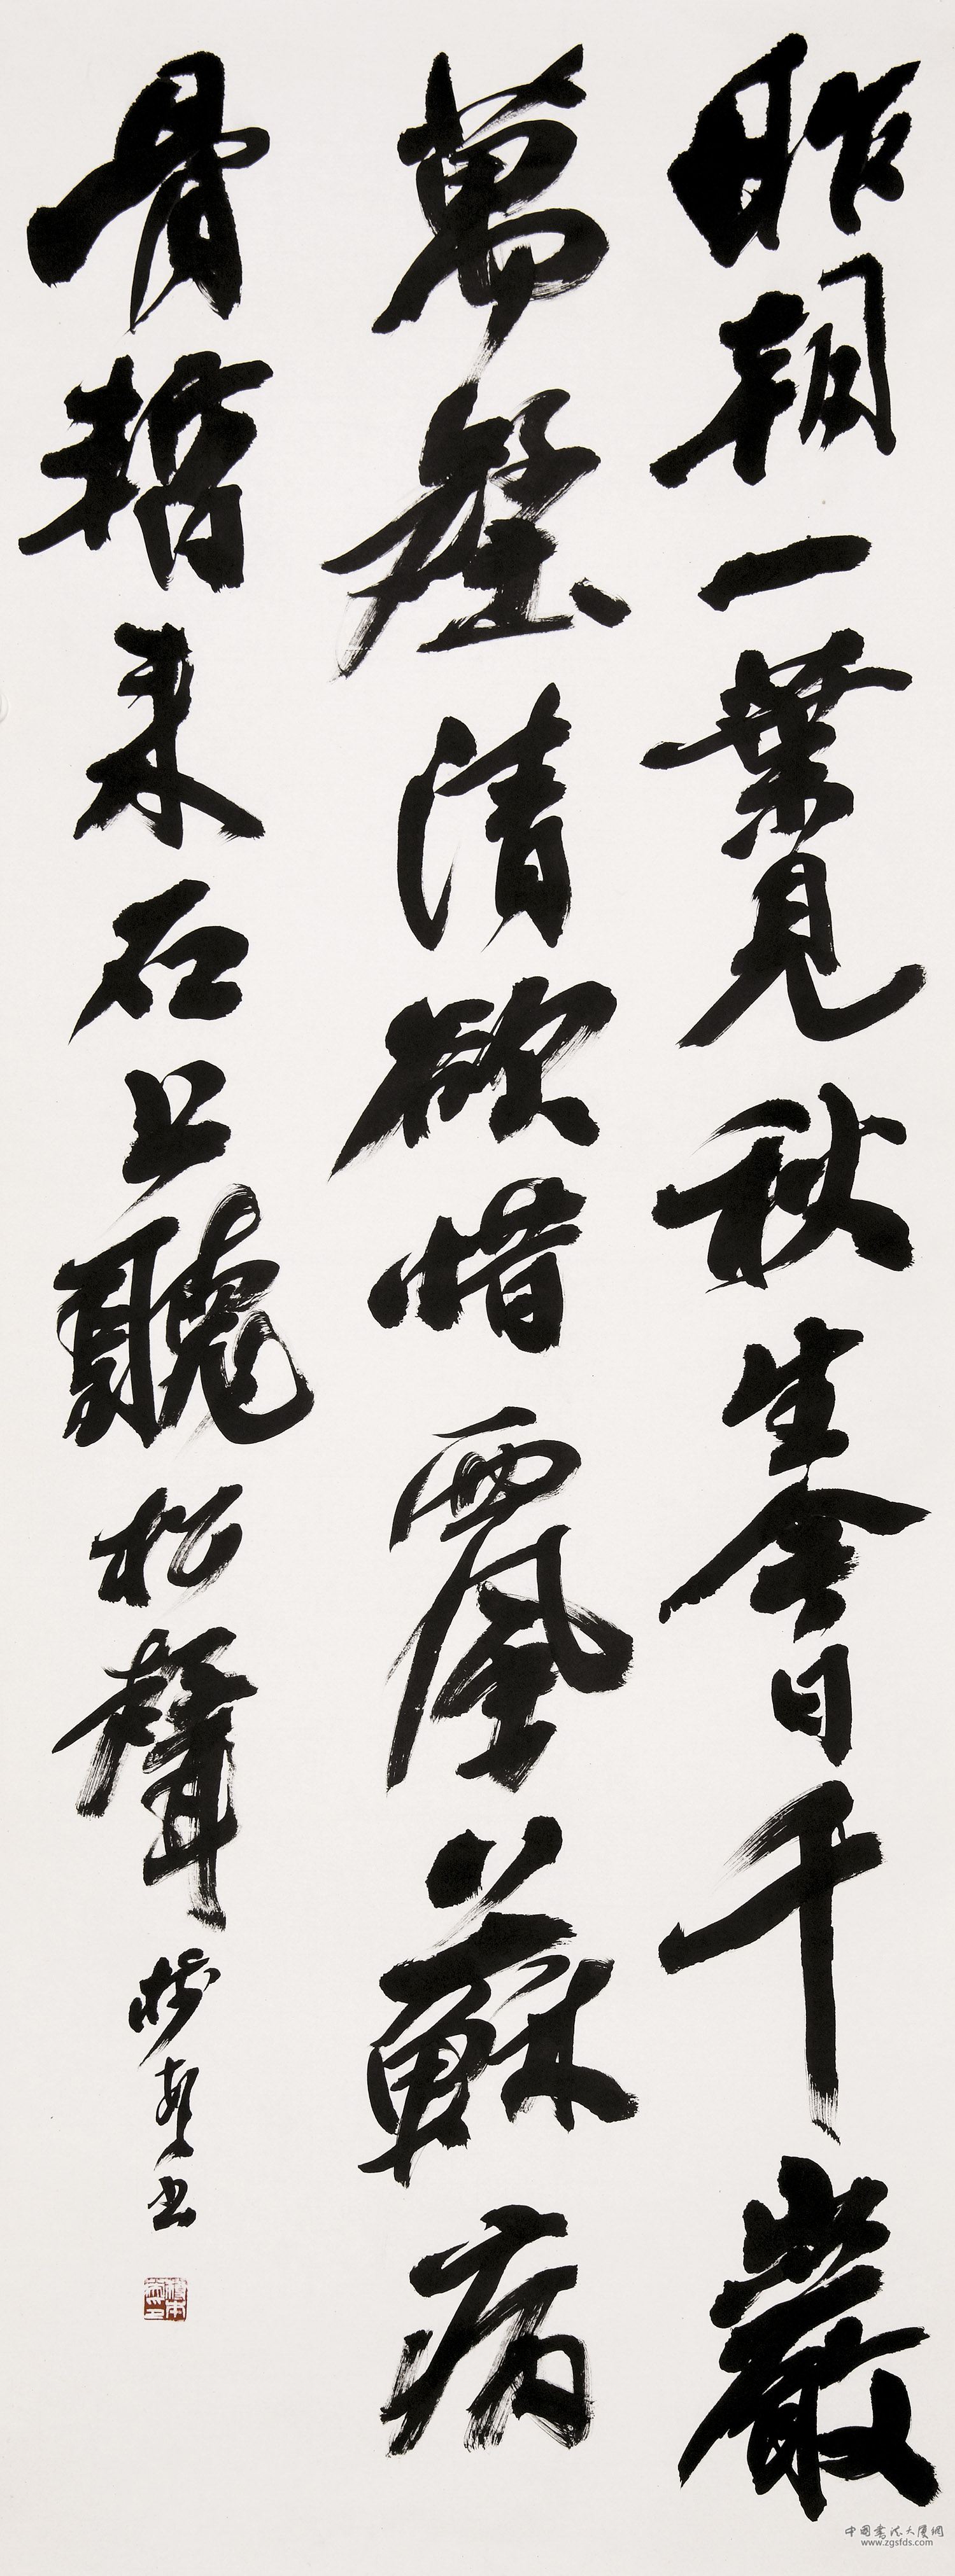 昨朝一葉見秋生今日千巖
萬壑清欲惜西風蘇病
骨來石上聽松聲
書
中國書法大廈網
www.zgsfds.com